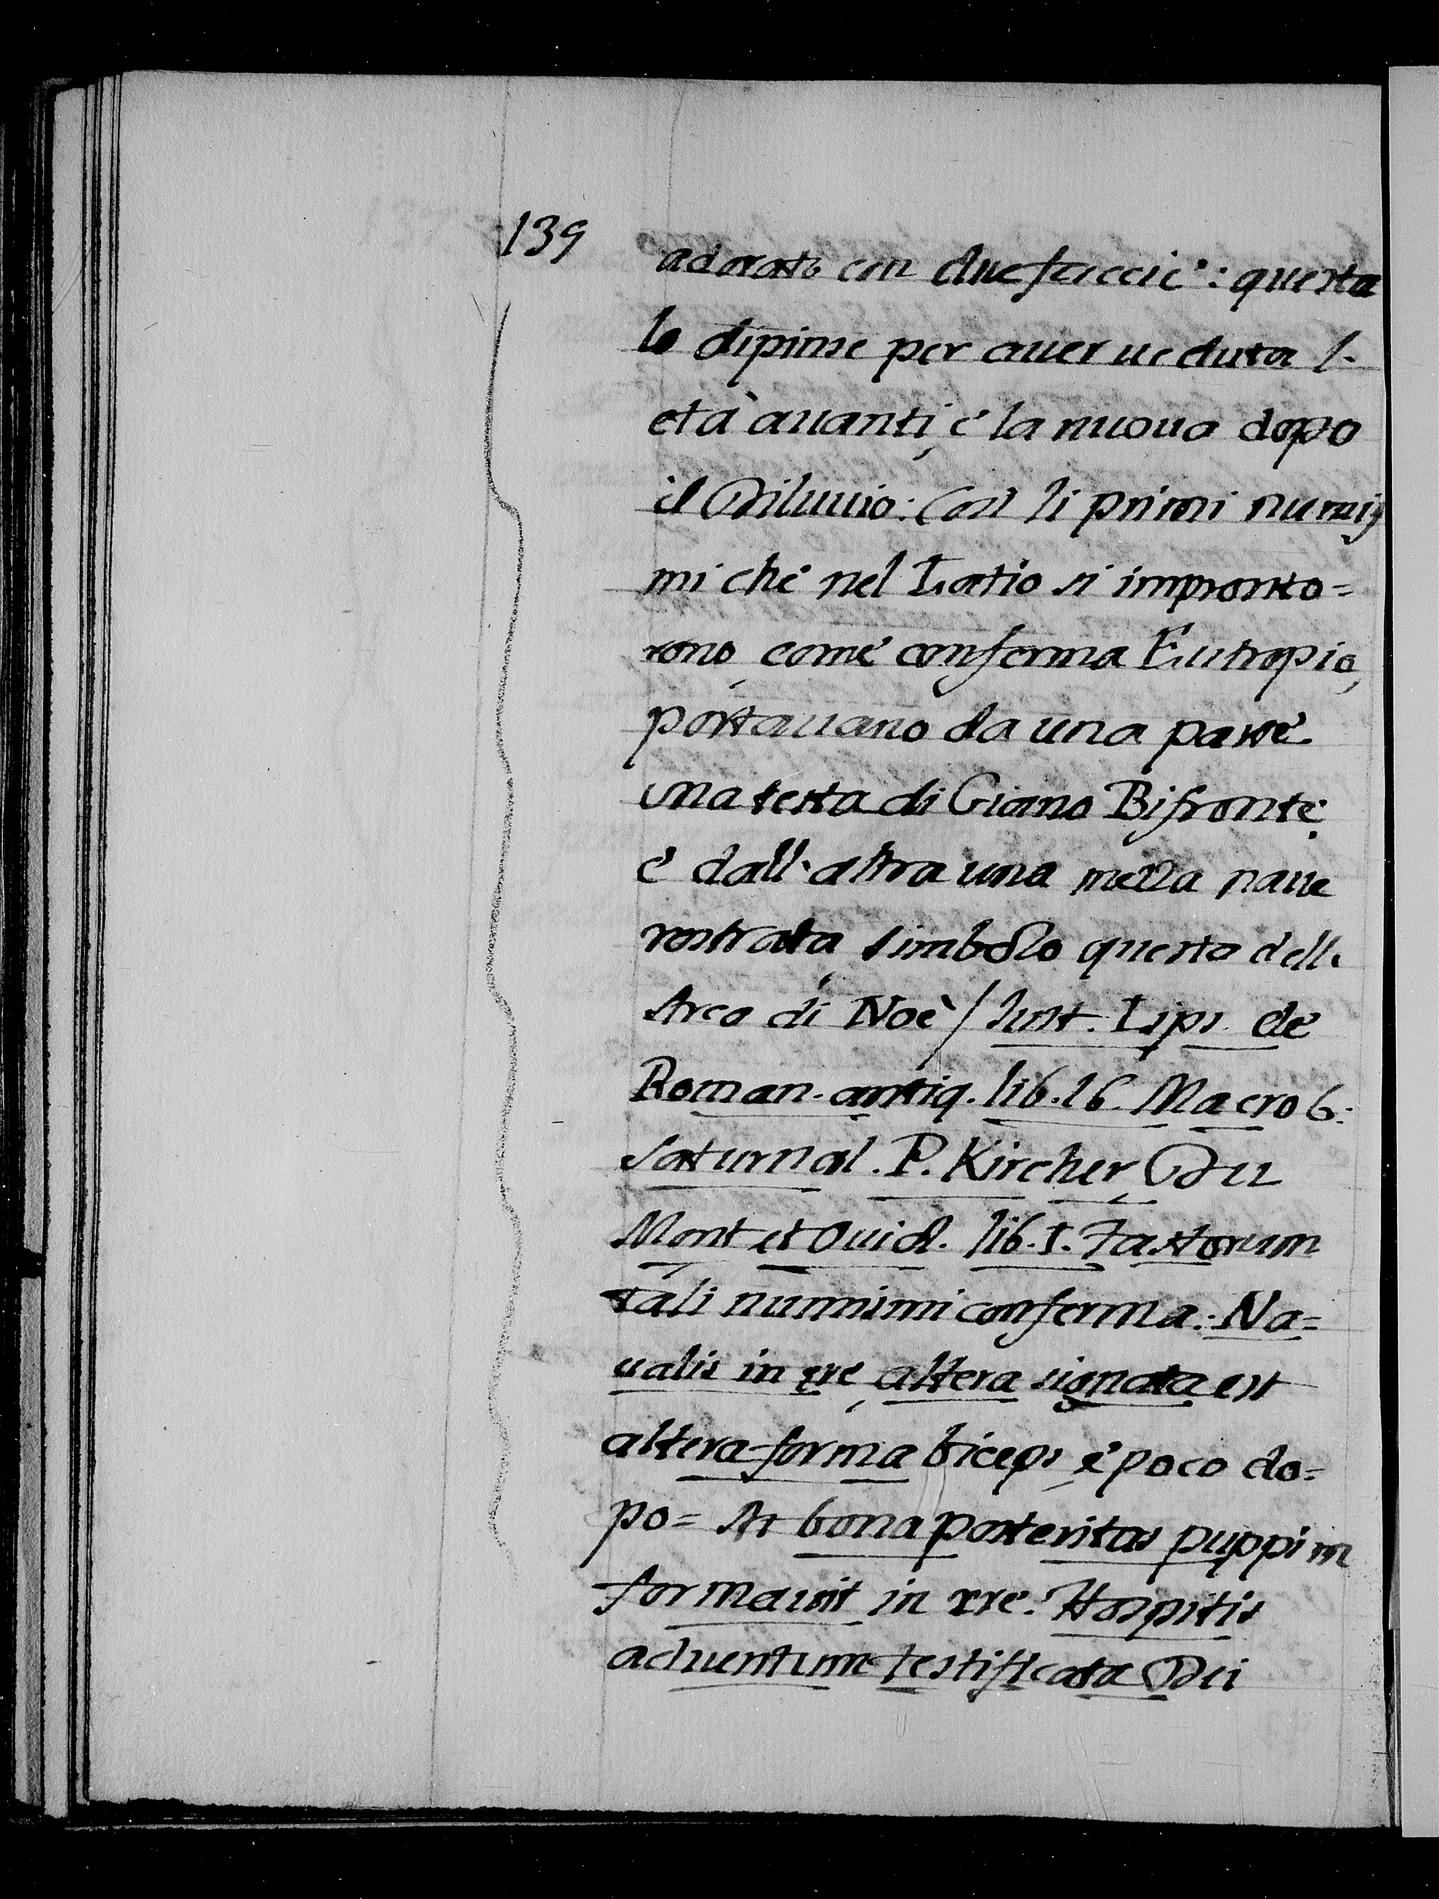 139
adorato con due faccie: questa
lo dipinse per auer ueduta l'
età auanti, e' la nuoua dopo
il Diluuio: Così li primi numis,
mi che nel Latio si impronto=
rono, come' conferma Eutropio,
portauano da una parte'
una testa di Giano Bifronte,
e' dall'altra una mezza naue
rostrata, simbolo questo dell'
Arca di Noè / Iust. Lips. de'
Roman. antiq. lib. 16. Macrob:
Saturnal. P. Kircher, Du
Mont, et Ouid. lib. I. Fastorum
tali nummimi conferma: Na=
ualis in ære, altera signata est
altera forma biceps, e' poco do=
po= At bona posteritas puppim
formauit in ære. Hospitis
aduentum testificata Dei